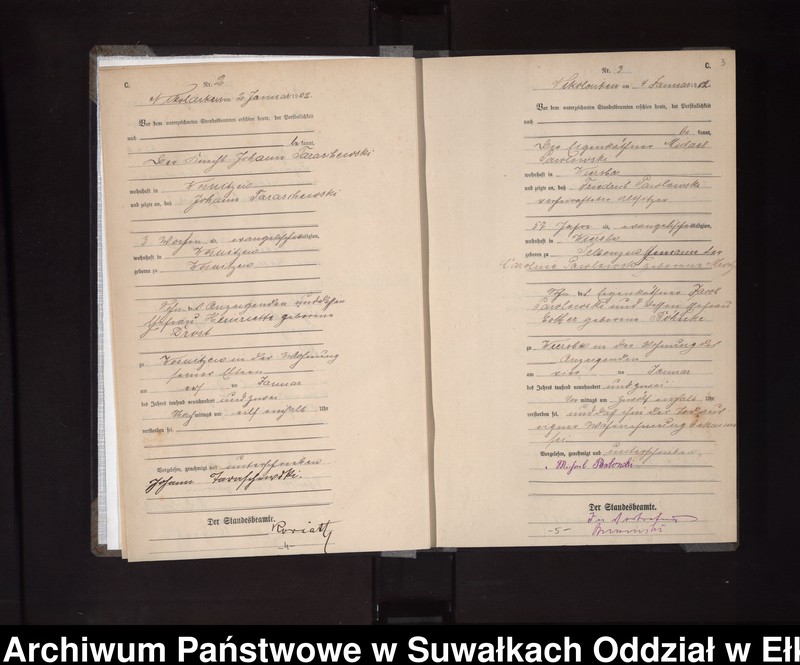 C.
Nr. 2
Nikolaiken 2 Januar 1902
Vor dem unterzeichneten Standesbeamten erschien heute, der Persönlichkeit
nach
be kannt,
Der Johann Taraschewski
wohnhaft in
und zeigte an, daß Johann Taraschewski
3 Wochen a evangelischer Religion,
wohnhaft in
geboren zu
Sohn des Anzeigenden und dessen
Ehefrau Henriette geborene
Drost
zu in der Wohnung
seiner Eltern
am ten Januar
des Jahres tausend neunhundert und zwei
Nach mittags um elf einhalb Uhr
verstorben sei.
Vorgelesen, genehmigt und unterschrieben
Johann Taraschewski.
Der Standesbeamte.
Koriath
-4-
C. 3
Nr. 3
Nikolaiken am 4 Januar 1902
Vor dem unterzeichneten Standesbeamten erschien heute, der Persönlichkeit
nach
be kannt,
Der Eigenkäthner Michael
Pawlowski
wohnhaft in Wiersba
und zeigte an, daß Friedrich Pawlowski
52 Jahre a evangelischer Religion,
wohnhaft in Wiersba
geboren zu Ehemann der
Caroline Pawlowski geborene
Sohn des Eigenkäthner Jacob
Pawlowski und dessen Ehefrau
Esther geborene
zu Wiersba in der Wohnung des
Anzeigenden
am ten Januar
des Jahres tausend neunhundert und zwei
Vor mittags um zwölf einhalb Uhr
verstorben sei und daß ihm der Tod aus
eigner Wahrnehmung bekannt
sei
Vorgelesen, genehmigt und unterschrieben.
Der Standesbeamte.
In Vertretung
-5-
Archiwum Państwowe w Suwałkach Oddział w Ełk